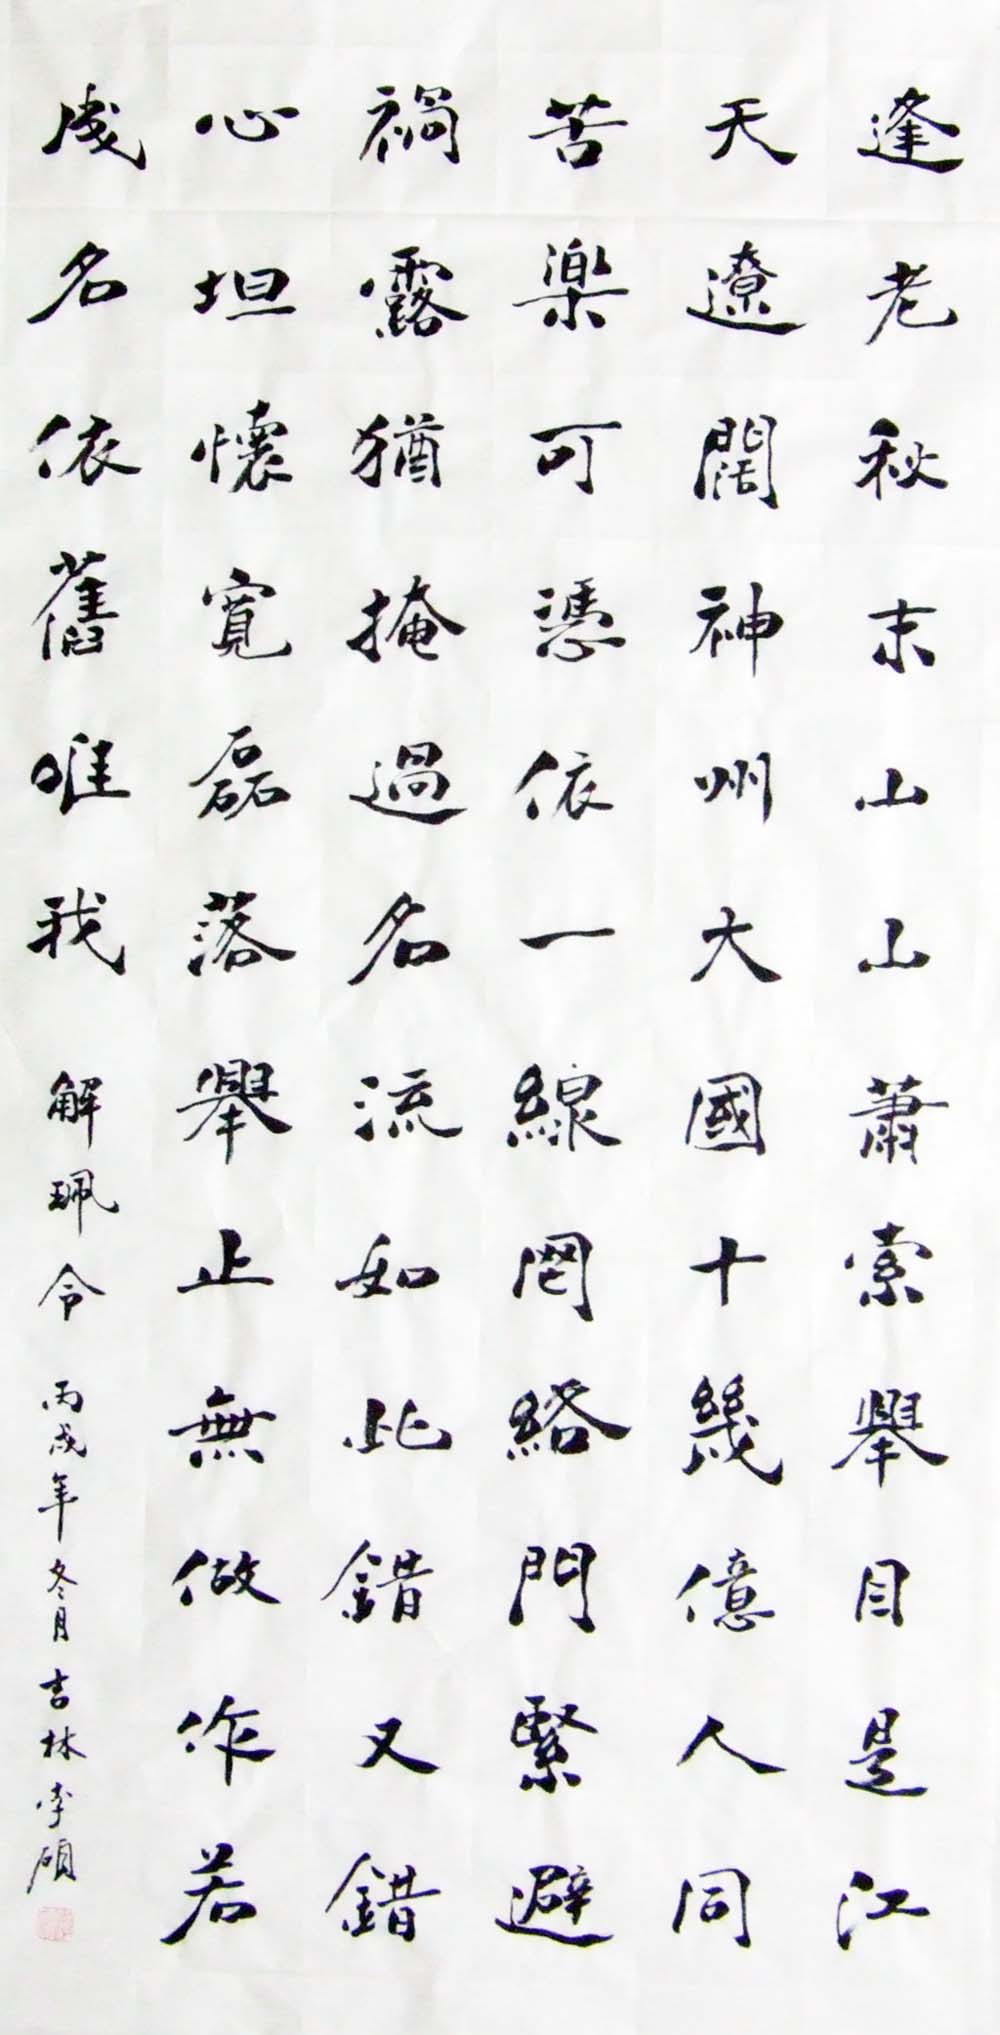 逢老秋末山山蕭索舉目是江
天遼闊神州大國十幾億人同
苦樂可憑依一線罔絡門緊避
禍露猶掩過名流和此錯又錯
心坦懷寬磊落舉止無做作若
成名依舊唯我 解珮令 丙戌年冬月吉林李碩